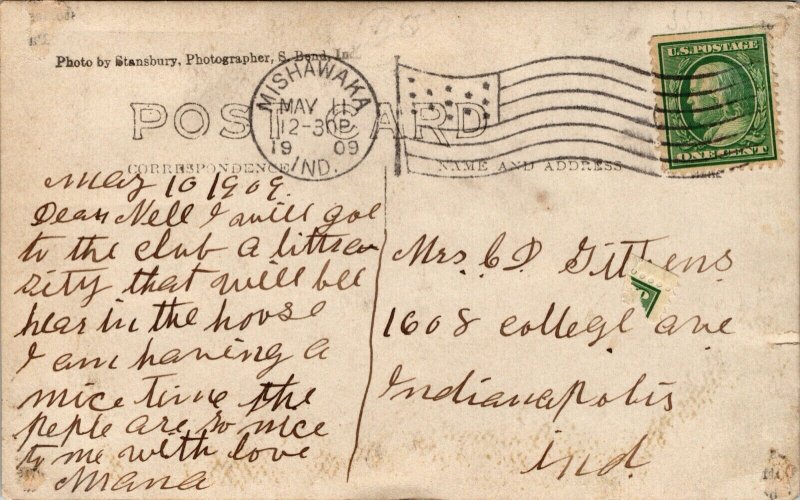 Photo by Stansbury, Photographer, S. Bend, Ind.
POST CARD
MISHAWAKA
MAY 11
12-30P
1909
IND.
U.S. POSTAGE
ONE CENT
CORRESPONDENCE
NAME AND ADDRESS
May 10 1909.
Dear Nell I will goe
to the club a littra
sity that will bee
hear in the house
I am having a
nice time the
peple are so nice
to me with love
Mama
Mrs. C D. Gittens
1608 college ave
Indianapolis
Ind.